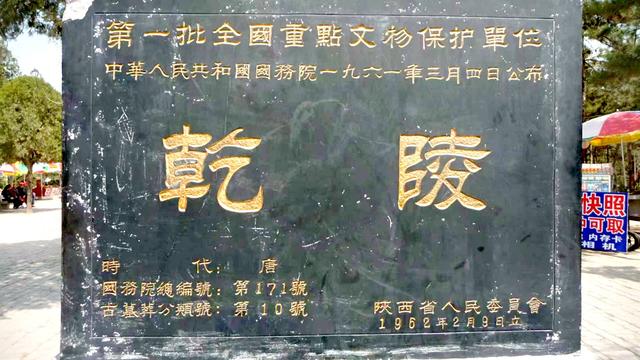 第一批全國重點文物保护單位
中華人民共和國國務院一九六一年三月四日公布
乾陵
時代：唐
國務院總編號：第171號
古墓葬分類號：第10號
陝西省人民委員會
1962年2月9日立
快照
可取
内存卡
相机